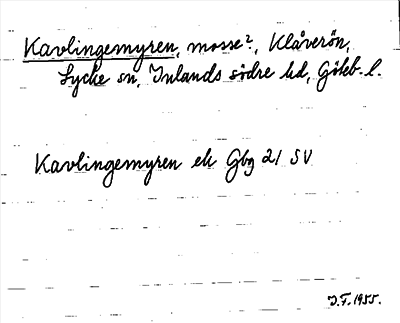 Kavlingemyren, mosse?, Klåverön,
Lycke sn, Inlands södre hd, Göteb. l.
Kavlingemyren ek Gbg 21 SV
J.F. 1955.